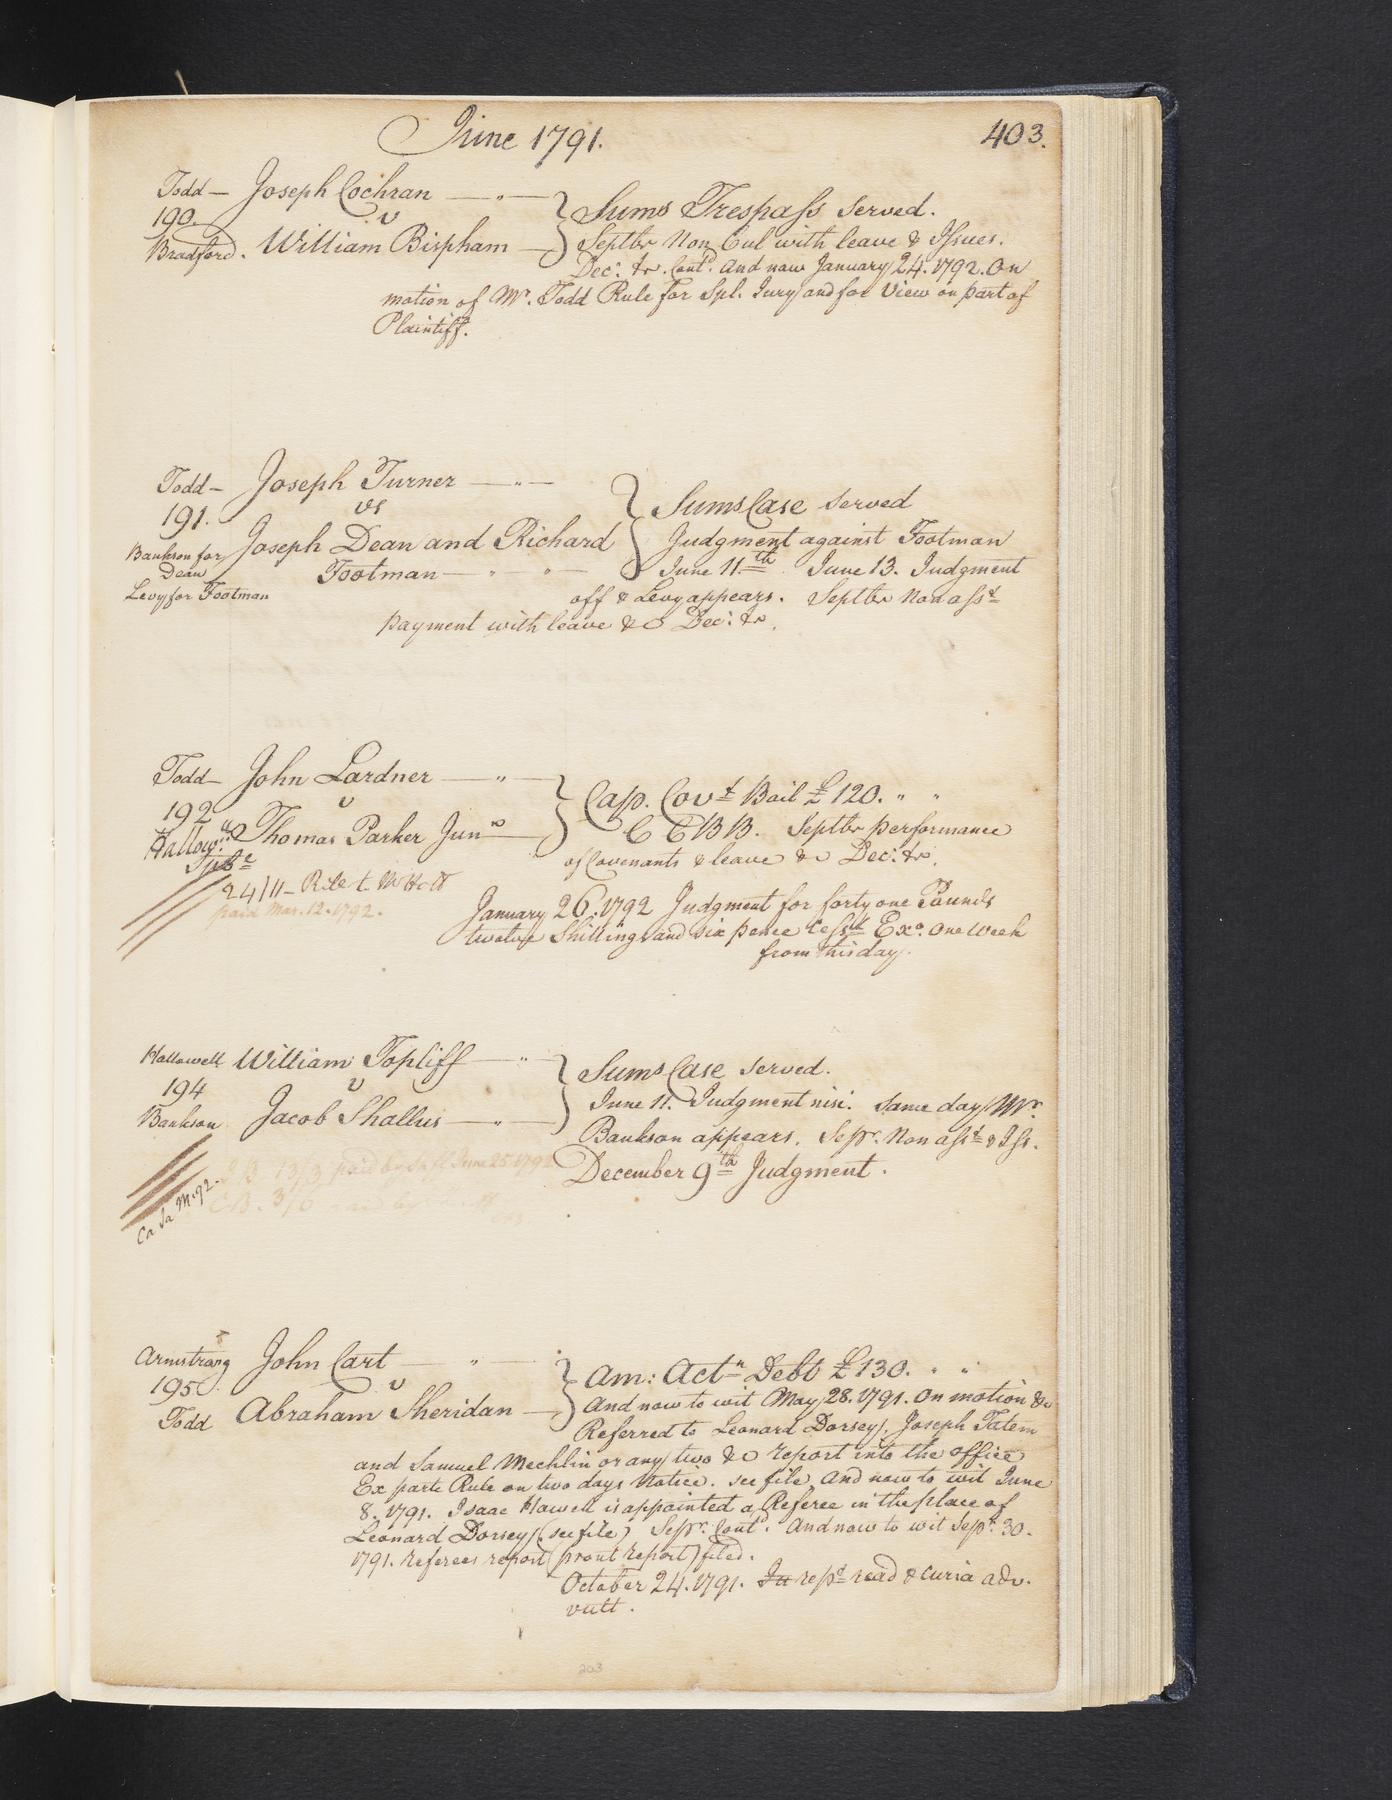 June 1791.
403.
Todd — Joseph Cochran — " —
190 v
Bradford. William Bispham —
Sums Trespass served.
Septbr Non Cul with leave & Issues.
Decr. &c. Contd. And now January 24. 1792. On
motion of Mr. Todd Rule for Spl. Jury and for View on part of
Plaintiff.
Todd — Joseph Turner — " —
191. vs
Bankson for Joseph Dean and Richard
Dean Footman — " " —
Levy for Footman
Sums Case served
Judgment against Footman
June 11th June 13. Judgment
off & Levy appears. Septbr Non asst
payment with leave &c Decr. &c.
Todd — John Lardner — " —
192 v
Hallowll Thomas Parker Junr —
Cap. Covt Bail £120. " "
C C B B. Septbr performance
of Covenants & leave &c Decr. &c.
24/11 —
paid Mar. 12. 1792.
January 26. 1792 Judgment for forty one Pounds
twelve Shillings and six pence Exo. one week
from this day.
Hallowell William Topliff — " —
194 v
Bankson Jacob Shallus — " —
Sums Case served.
June 11. Judgment nisi. same day Mr.
Bankson appears. Sepr. Non asst & Iss.
December 9th Judgment.
13/3 paid by June 25 1792
3/6 paid by
Ca Sa M. 92.
Armstrong John Cart — " —
195 v
Todd Abraham Sheridan —
Am: Actn Debt £130. " "
And now to wit May 28. 1791. On motion &c
Referred to Leonard Dorsey, Joseph Tatem
and Samuel Mechlin or any two &c report into the office
Ex parte Rule on two days Notice. see file. And now to wit June
8. 1791. Isaac Howell is appointed a Referee in the place of
Leonard Dorsey (see file) Sepr. Contd. And now to wit Sepr. 30.
1791. Referees report (prout report) filed.
October 24. 1791. rept read & curia adv.
vult.
203